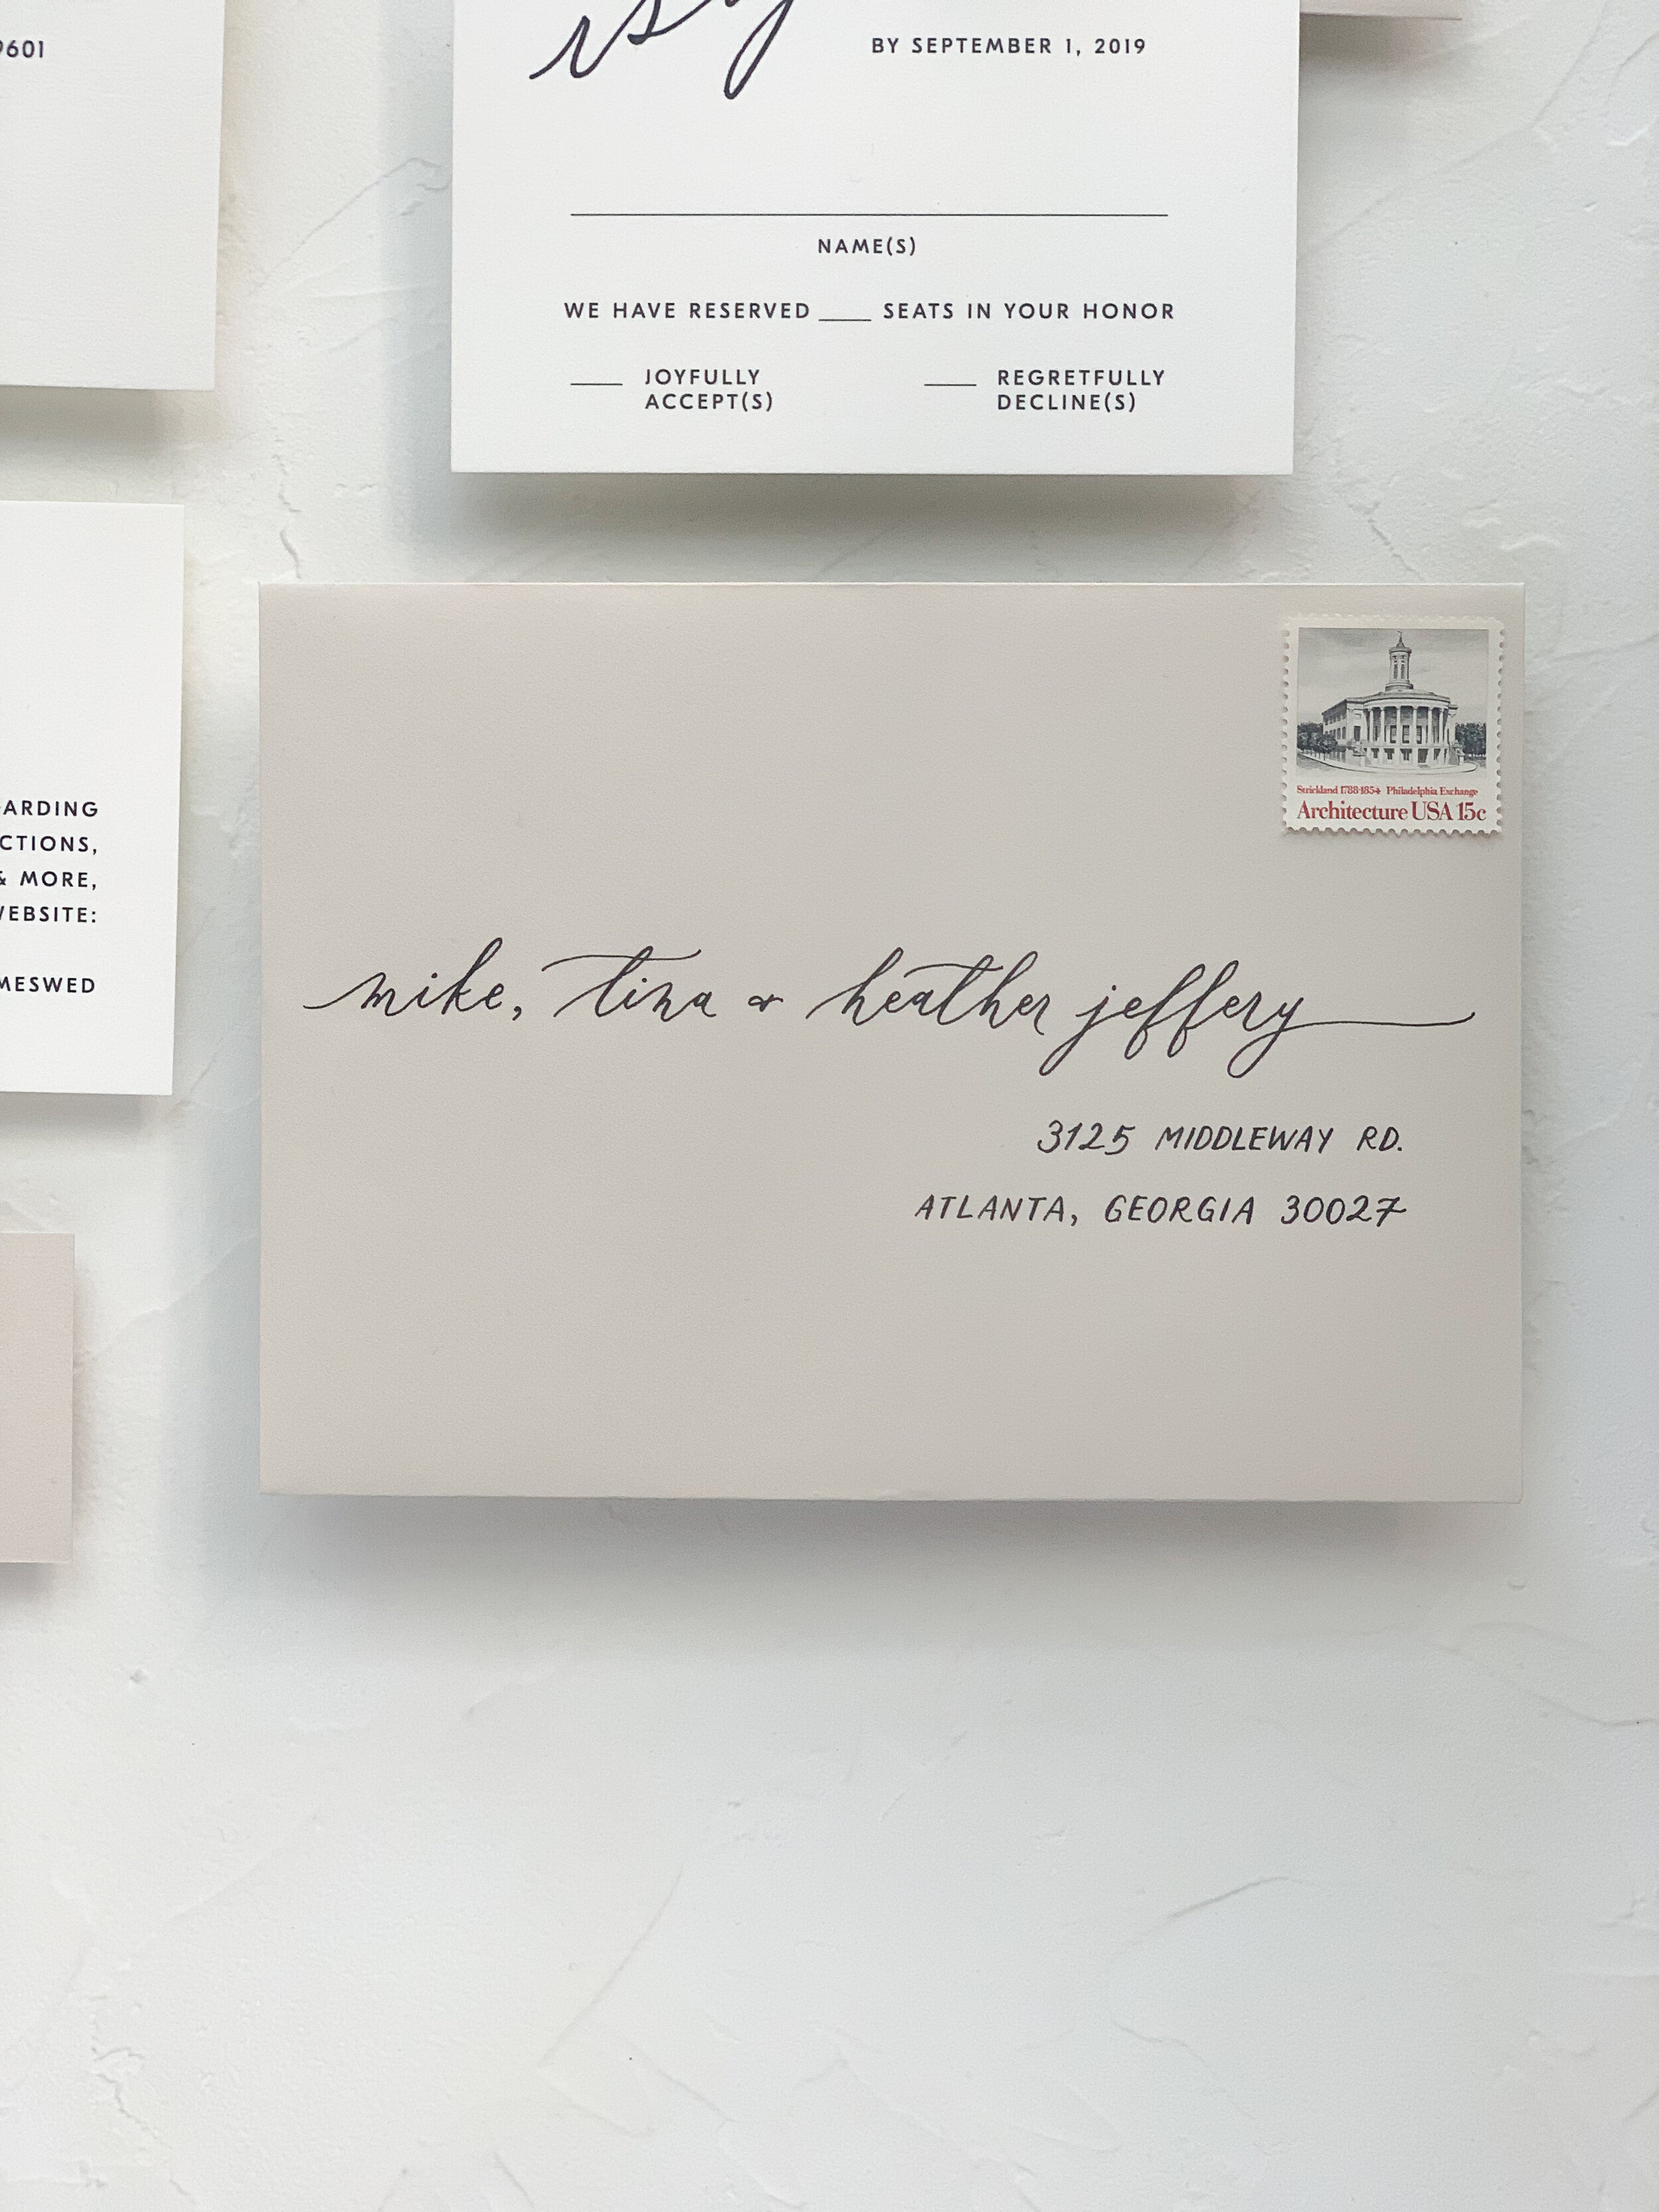 9601
rsv
BY SEPTEMBER 1, 2019
NAME(S)
WE HAVE RESERVED ____ SEATS IN YOUR HONOR
____ JOYFULLY ACCEPT(S)
____ REGRETFULLY DECLINE(S)
ARDING
CTIONS,
& MORE,
EBSITE:
MESWED
Strickland 1788-1854 Philadelphia Exchange
Architecture USA 15c
mike, tina & heather jeffery
3125 MIDDLEWAY RD.
ATLANTA, GEORGIA 30027